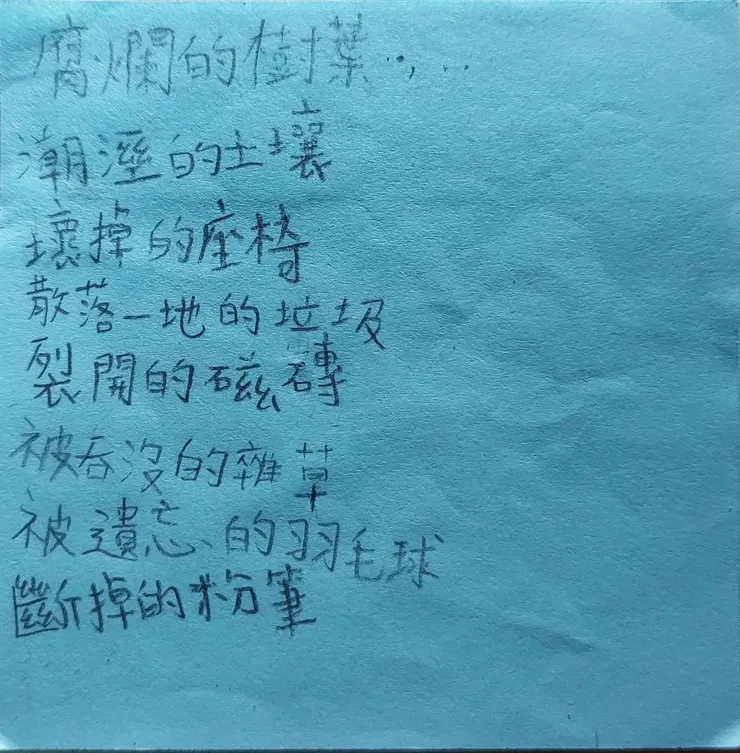 腐爛的樹葉......
潮溼的土壤
壞掉的座椅
散落一地的垃圾
裂開的磁磚
被吞沒的雜草
被遺忘的羽毛球
斷掉的粉筆